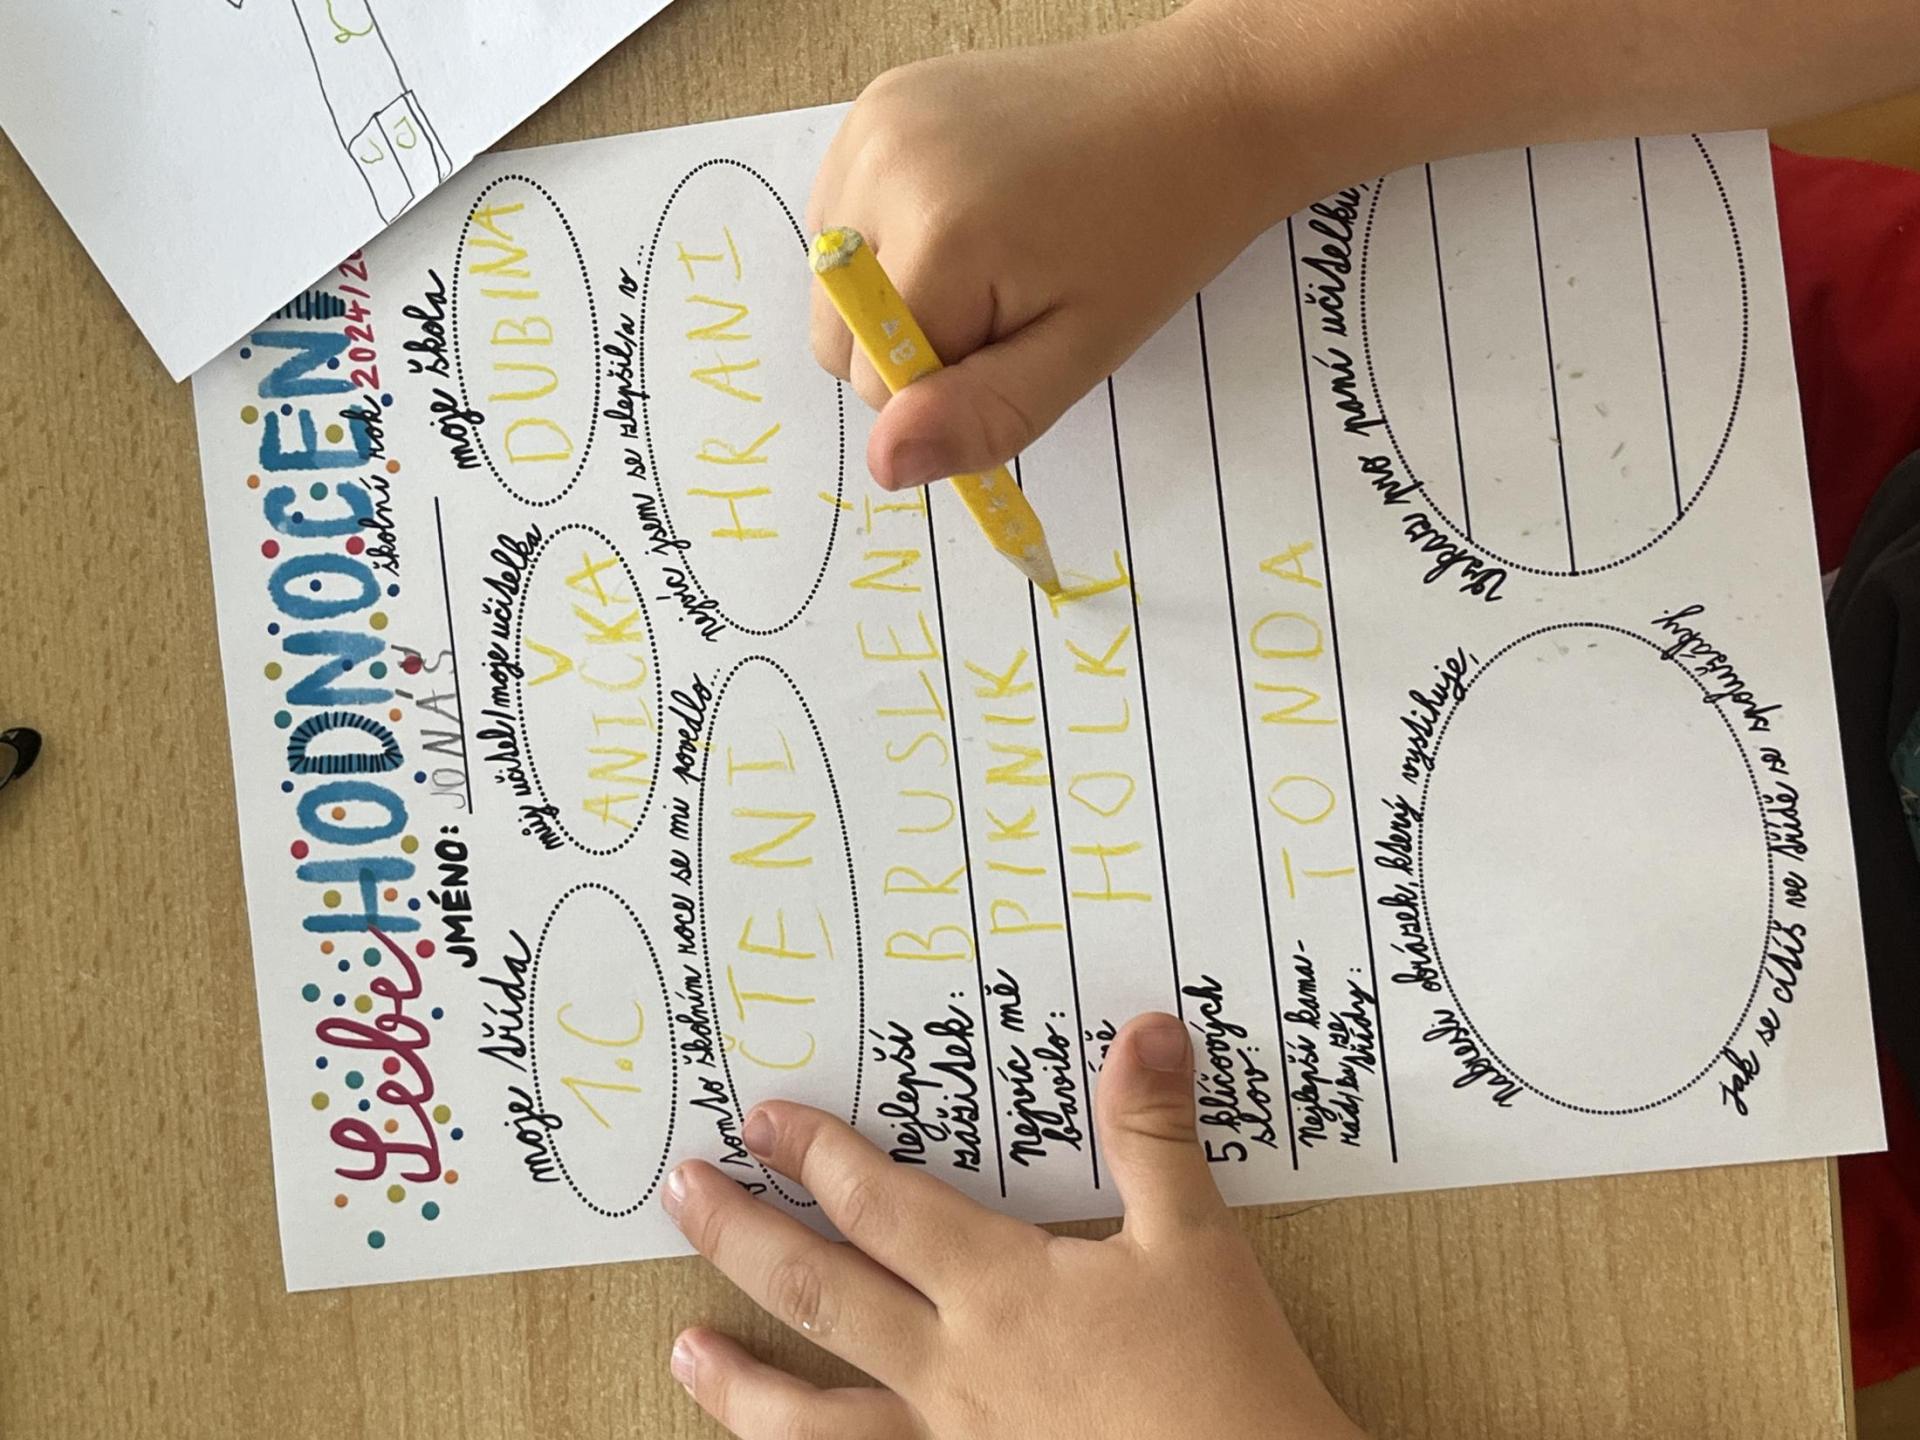 Sebe HODNOCENÍ
školní rok 2024/20
JMÉNO: JONÁŠ
moje třída
1.C
můj učitel/moje učitelka
ANIČKA
moje škola
DUBINA
tomto školním roce se mi povedlo...
ČTENÍ
nejvíc jsem se zlepšil/a v ...
HRANÍ
Nejlepší zážitek: BRUSLENÍ
Nejvíc mě bavilo: PIKNIK
HOLKI
5 klíčových slov:
Nejlepší kama-
rád/ka ze třídy: TONDA
Nakresli obrázek, který vystihuje,
Jak se cítíš ve třídě se spolužáky
Vzkaz pro paní učitelku,